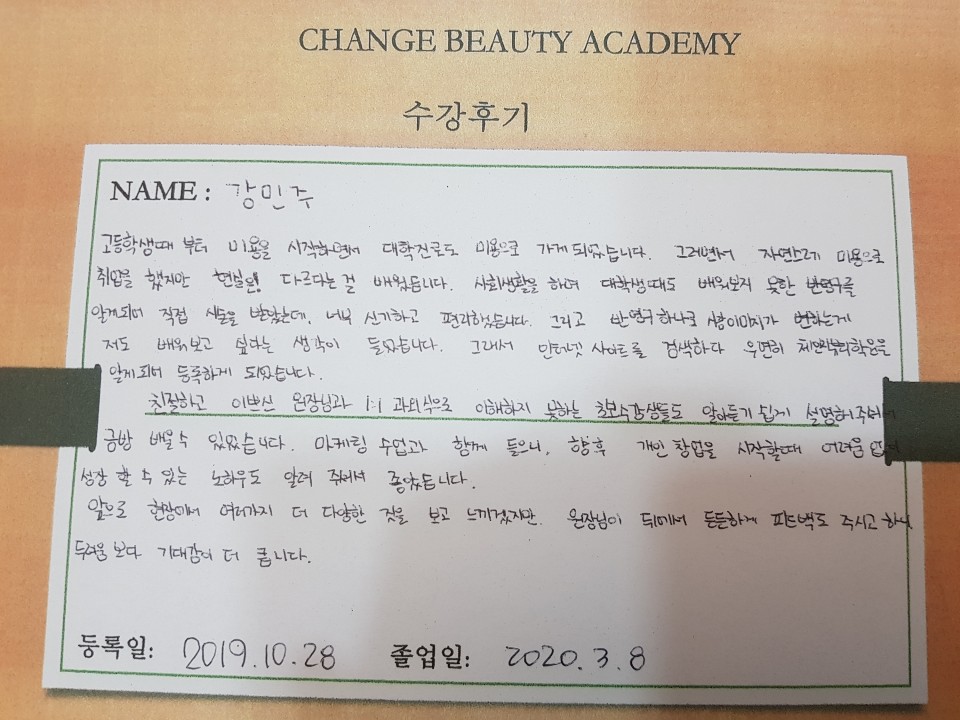 CHANGE BEAUTY ACADEMY
수강후기
NAME : 강민주
고등학생때 부터 미용을 시작하면서 대학진로도 미용으로 가게되었습니다. 그러면서 자연스레 미용으로
취업을 했지만 현실은! 다르다는걸 배웠습니다. 사회생활을 하며 대학생때도 배워보지 못한 반영구를
알게되어 직접 시술을 받았는데, 너무 신기하고 편리했습니다. 그리고 반영구 하나로 사람이미지가 변하는게
저도 배워보고 싶다는 생각이 들었습니다. 그래서 인터넷 사이트를 검색하다 우연히 체인지뷰티학원을
알게되어 등록하게 되었습니다.
친절하고 이쁘신 원장님과 1:1 과외식으로 이해하지 못하는 초보수강생들도 알아듣기 쉽게 설명해주셔서
금방 배울수 있었습니다. 마케팅 수업과 함께 들으니, 향후 개인창업을 시작할때 어려움 없이
성장 할 수 있는 노하우도 알려 주셔서 좋았습니다.
앞으로 현장에서 여러가지 더 다양한 것을 보고 느끼겠지만. 원장님이 뒤에서 든든하게 피드백도 주시고 하니
두려움 보다 기대감이 더 큽니다.
등록일: 2019.10.28 졸업일: 2020.3.8